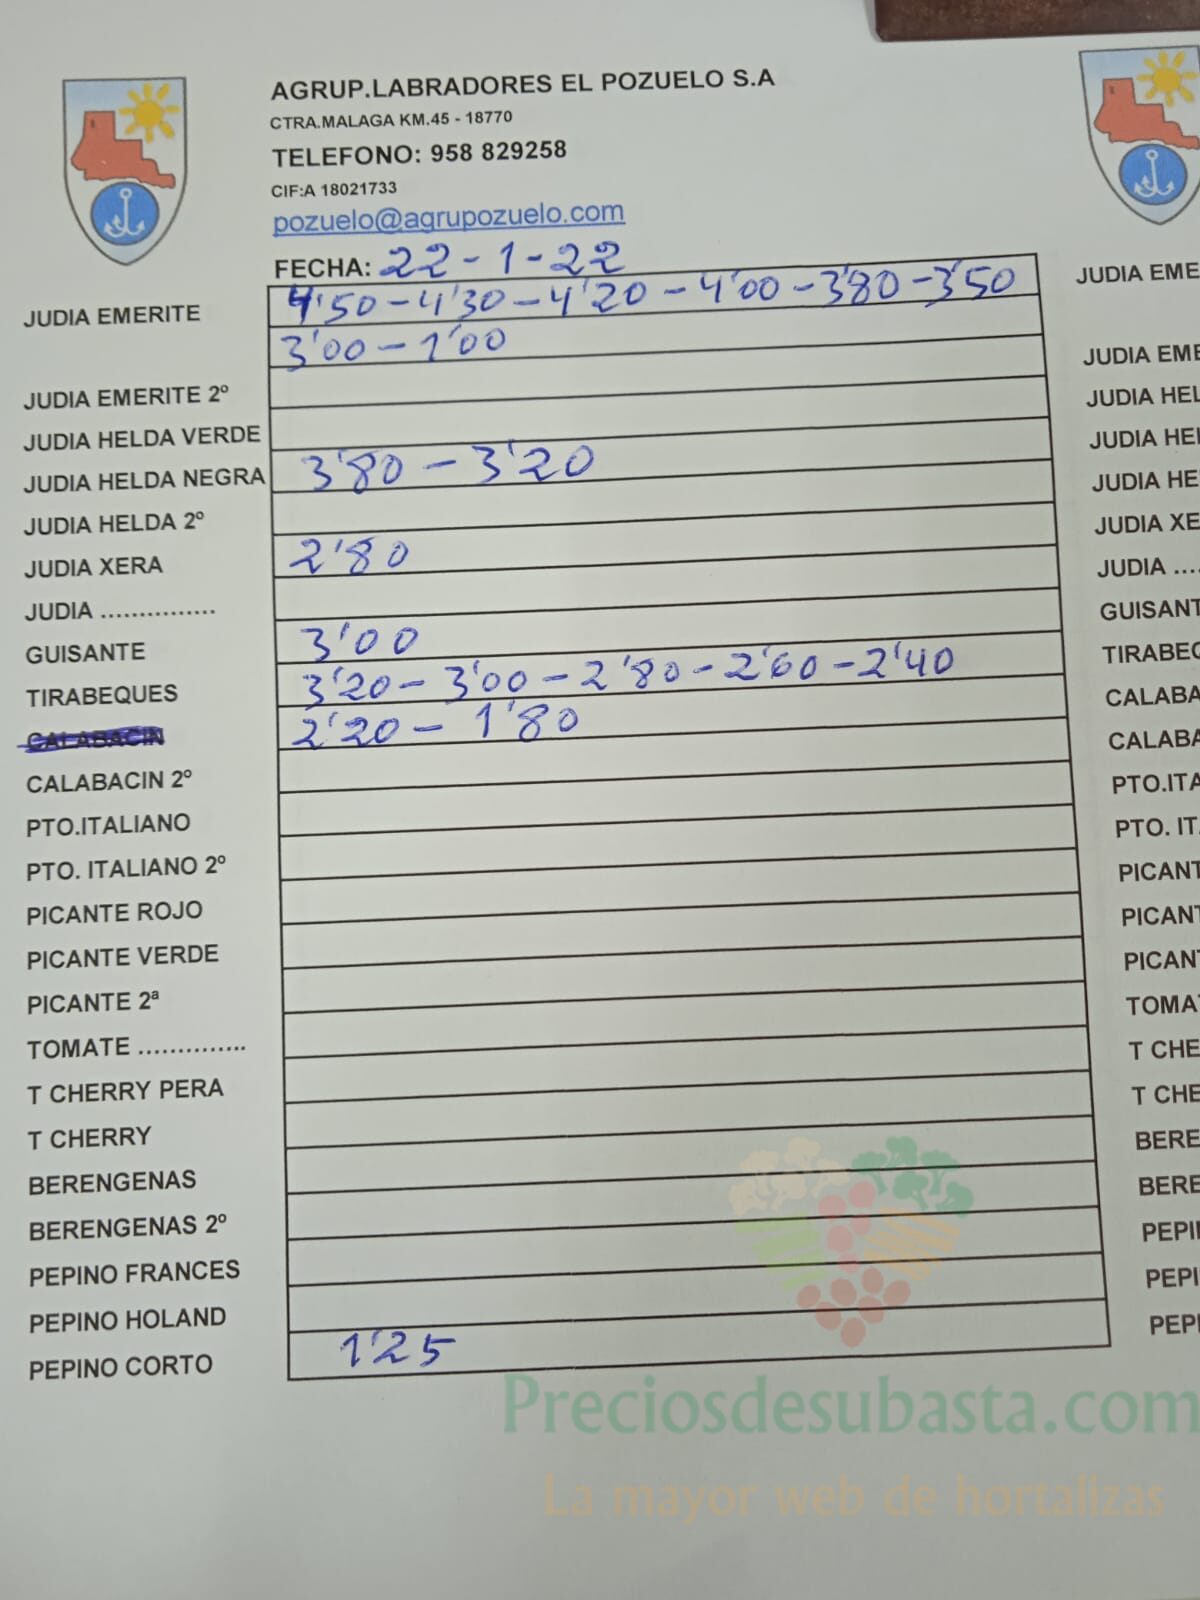 AGRUP.LABRADORES EL POZUELO S.A
CTRA.MALAGA KM.45 - 18770
TELEFONO: 958 829258
CIF:A 18021733
pozuelo@agrupozuelo.com
FECHA: 22-1-22
JUDIA EMERITE 4'50-4'30-4'20-4'00-3'80-3'50
3'00-1'00
JUDIA EMERITE 2º
JUDIA HELDA VERDE
JUDIA HELDA NEGRA 3'80-3'20
JUDIA HELDA 2º
JUDIA XERA 2'80
JUDIA ...............
GUISANTE 3'00
TIRABEQUES 3'20-3'00-2'80-2'60-2'40
CALABACIN 2'20-1'80
CALABACIN 2º
PTO.ITALIANO
PTO. ITALIANO 2º
PICANTE ROJO
PICANTE VERDE
PICANTE 2ª
TOMATE ..............
T CHERRY PERA
T CHERRY
BERENGENAS
BERENGENAS 2º
PEPINO FRANCES
PEPINO HOLAND
PEPINO CORTO 1'25
JUDIA EME
JUDIA EME
JUDIA HEL
JUDIA HE
JUDIA HE
JUDIA XE
JUDIA ....
GUISANT
TIRABEQ
CALABA
CALABA
PTO.ITA
PTO. IT
PICANT
PICAN
PICAN
TOMA
T CHE
T CHE
BERE
BERE
PEPI
PEPI
PEP
Preciosdesubasta.com
La mayor web de hortalizas